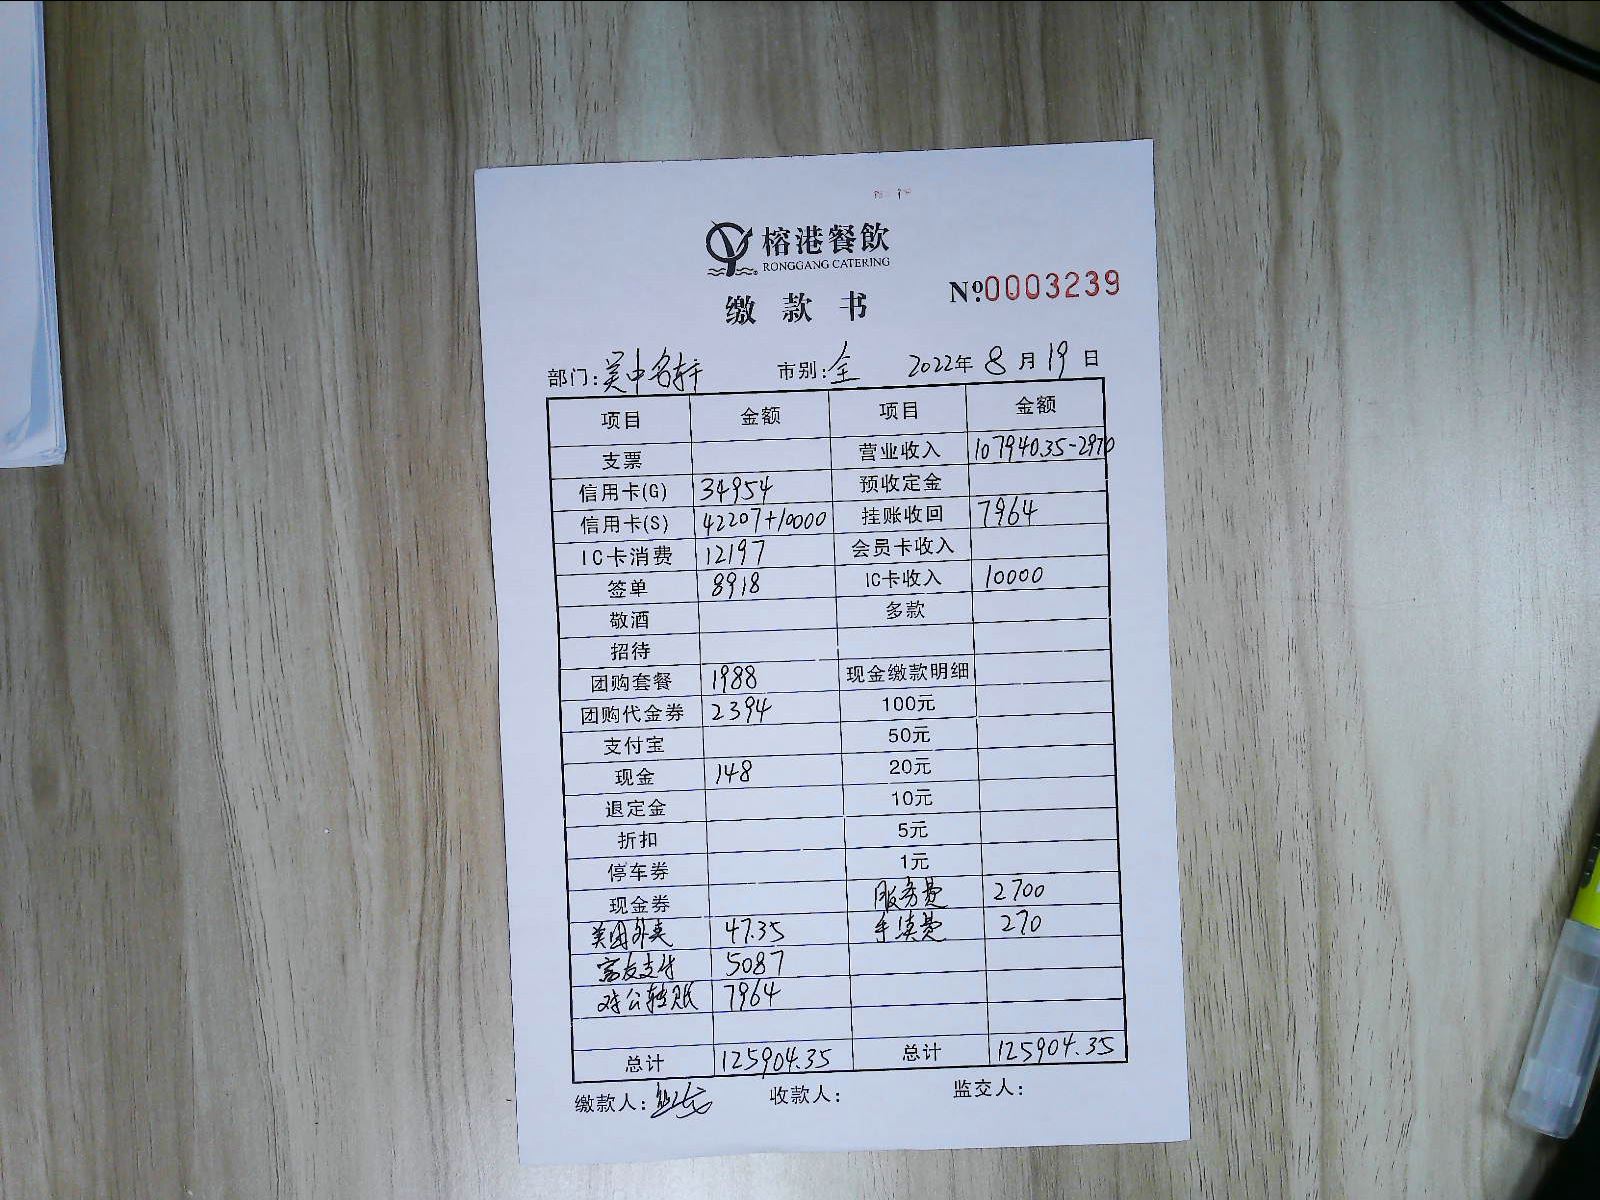 榕港餐飲
RONGGANG CATERING
缴款书 Nº0003239
部门：吴中名轩 市别：全 2022年8月19日
项目 金额 项目 金额
支票 营业收入 107940.35-2970
信用卡(G) 34954 预收定金
信用卡(S) 42207+10000 挂账收回 7964
IC卡消费 12197 会员卡收入
签单 8918 IC卡收入 10000
敬酒 多款
招待
团购套餐 1988 现金缴款明细
团购代金券 2394 100元
支付宝 50元
现金 148 20元
退定金 10元
折扣 5元
停车券 1元
现金券 服务费 2700
美团外卖 47.35 手续费 270
富友支付 5087
对公转账 7964
总计 125904.35 总计 125904.35
缴款人： 收款人： 监交人：